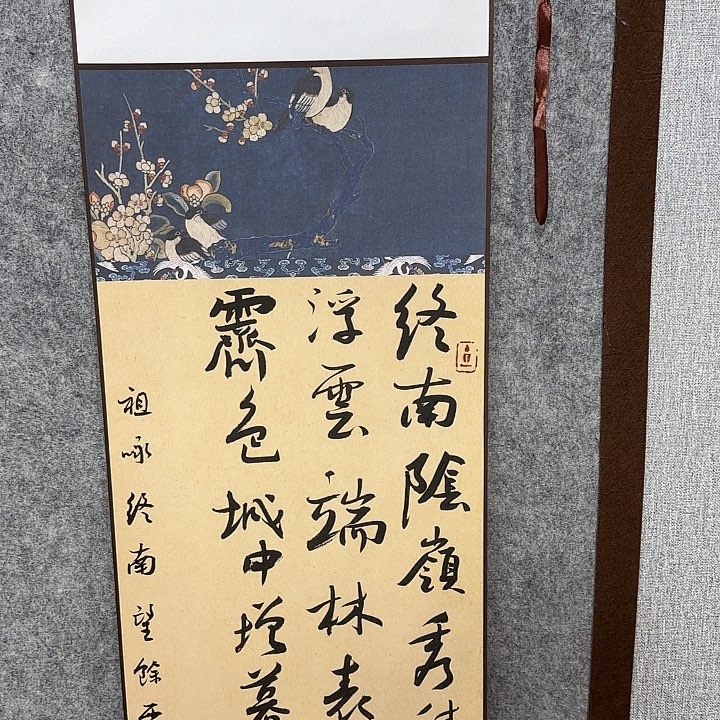 終南陰嶺秀
浮雲端林表
霽色城中增暮
祖咏終南望餘